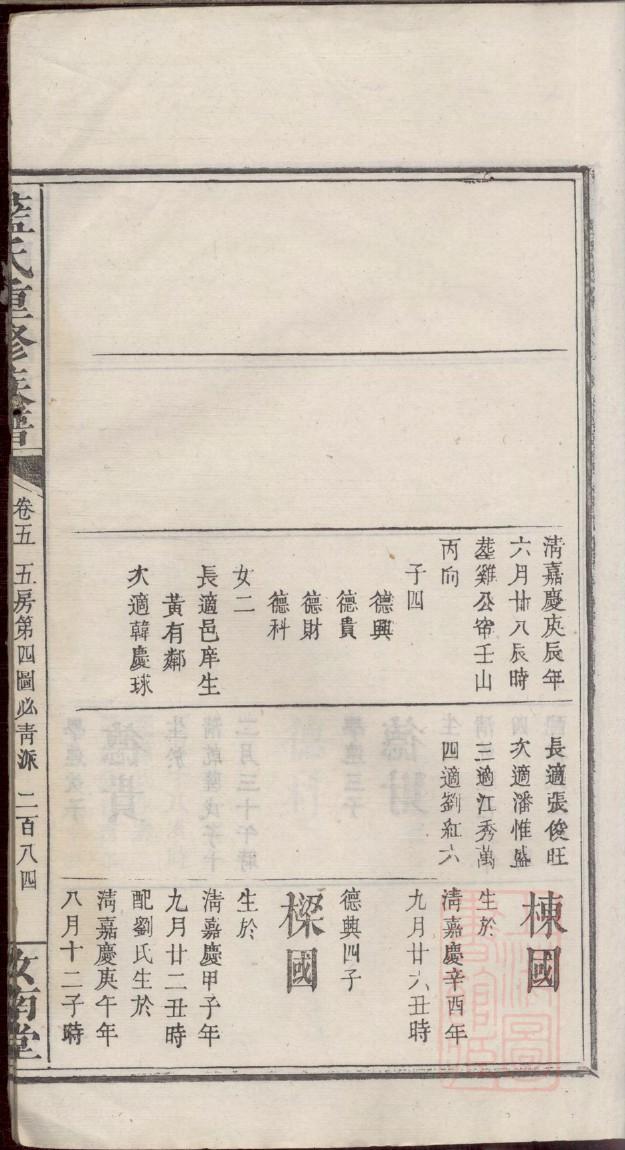 清嘉慶庚辰年
六月廿八辰時
塟雞公帘壬山
丙向
子四
德興
德貴
德財
德科
女二
長適邑庠生
黃有鄰
次適韓慶球
長適張俊旺
次適潘惟盛
三適江秀萬
四適劉紅六
棟國
生於
清嘉慶辛酉年
九月廿六丑時
德興四子
樑國
生於
清嘉慶甲子年
九月廿二丑時
配劉氏生於
清嘉慶庚午年
八月十二子時
藍氏重修族譜
卷五 五房第四圖必青派 二百八四
汝南堂